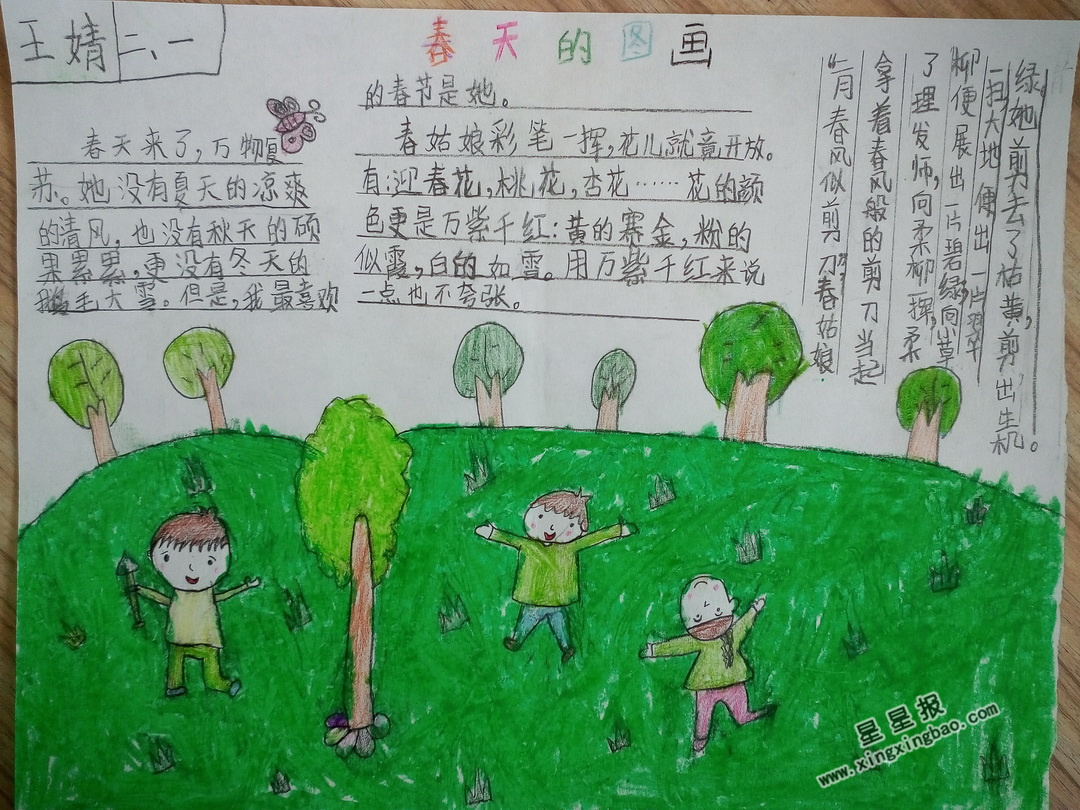 王婧 二、一
春天的图画
春天来了，万物复
苏。她没有夏天的凉爽
的清风，也没有秋天的硕
果累累，更没有冬天的
鹅毛大雪。但是，我最喜欢
的春节是她。
春姑娘彩笔一挥，花儿就竟开放。
有：迎春花，桃花，杏花……花的颜
色更是万紫千红：黄的赛金，粉的
似霞，白的如雪。用万紫千红来说
一点也不夸张。
“二月春风似剪刀”春姑娘
拿着春风般的剪刀当起
了理发师，向柔柳一挥，柔
柳便展出一片碧绿，向小草
一扫大地便出一片翠
绿。她剪去了枯黄，剪出生机。
星星报
www.xingxingbao.com